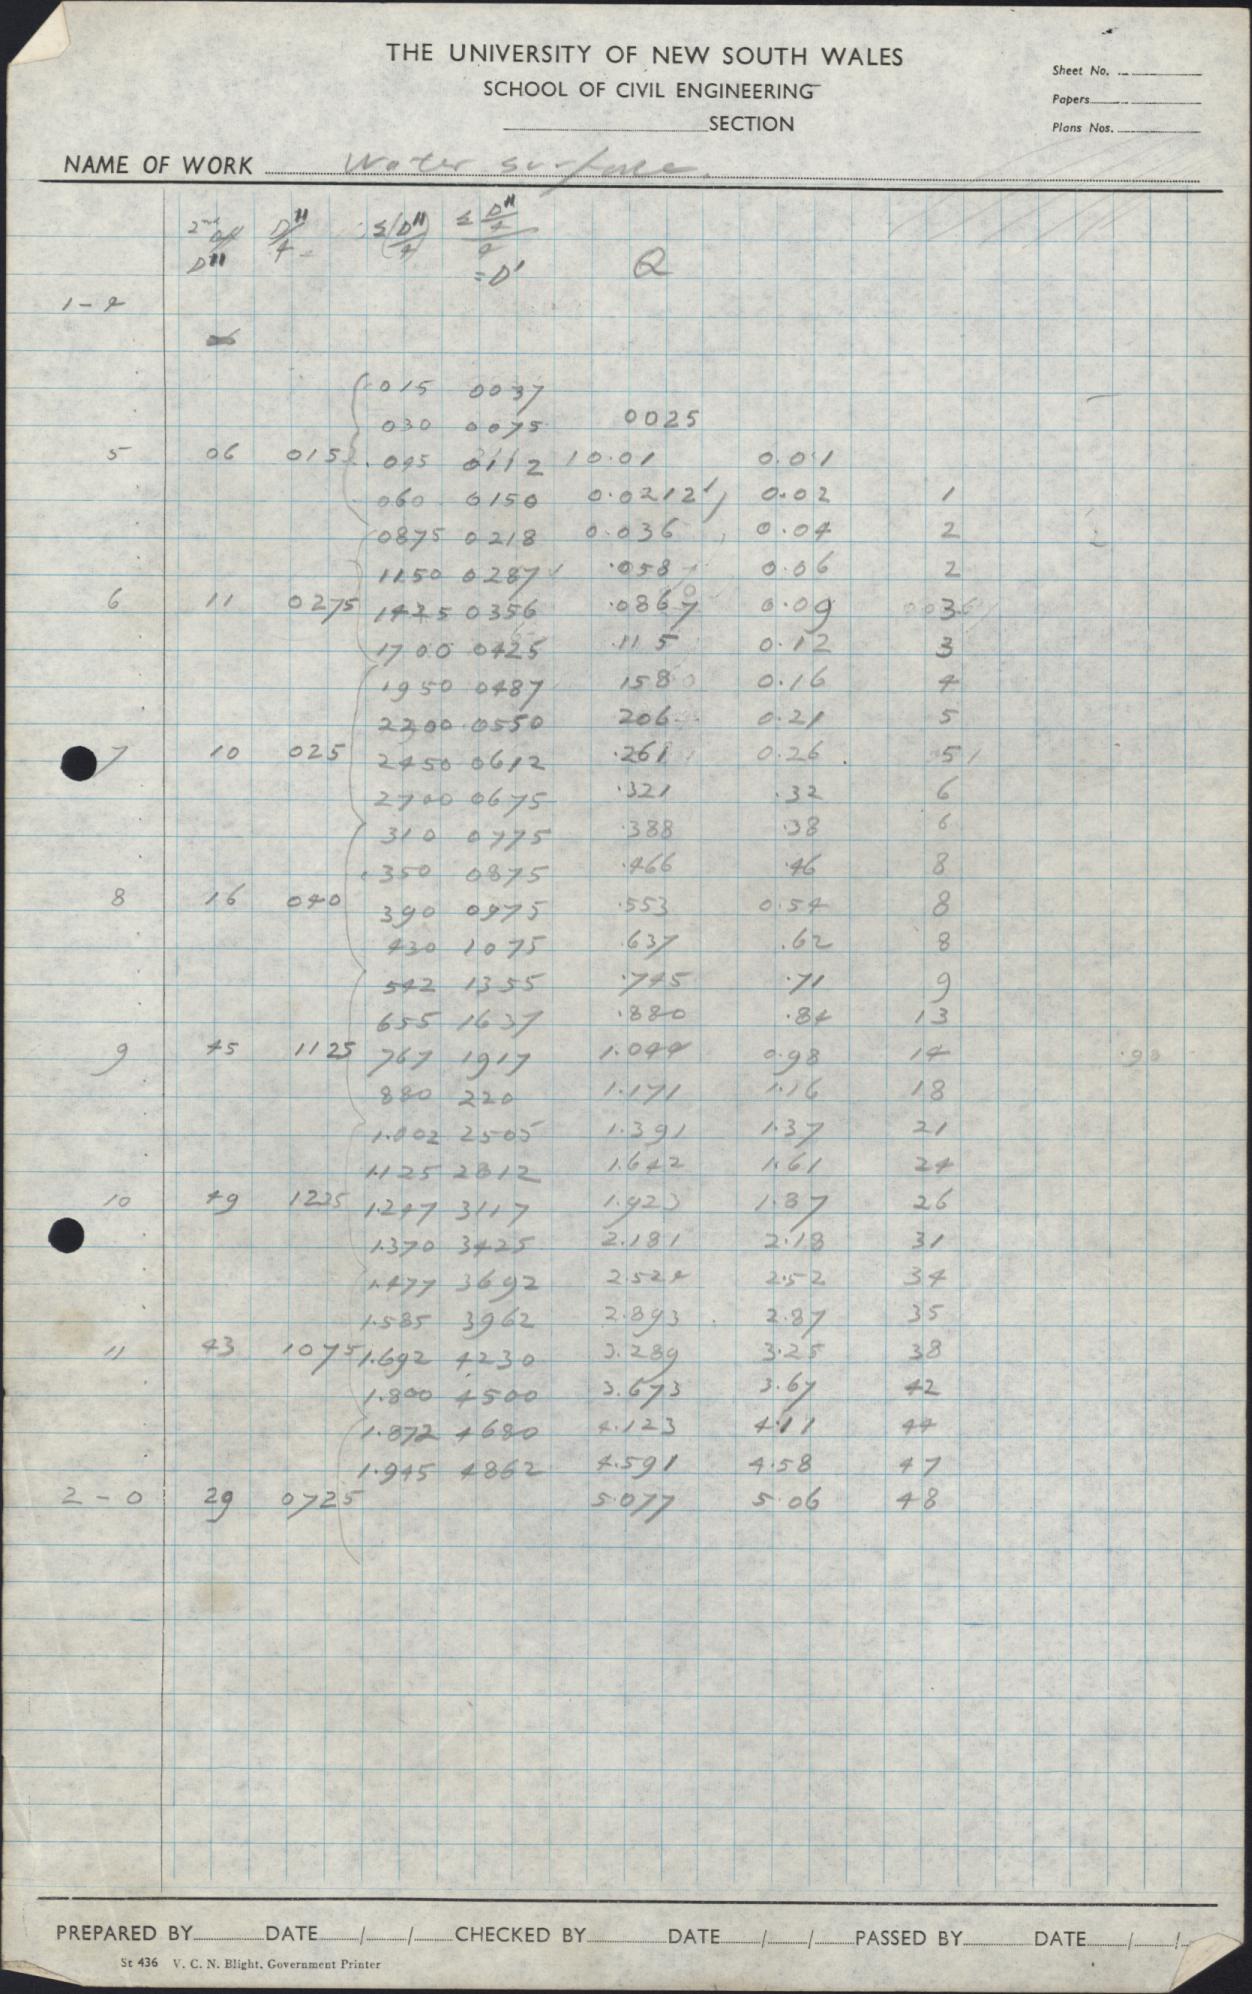 THE UNIVERSITY OF NEW SOUTH WALES
SCHOOL OF CIVIL ENGINEERING
SECTION
Sheet No.
Papers
Plans Nos.
NAME OF WORK Water surface.
D" D"/4 Σ(D"/4) Σ D"/4 /4 = D' Q
1-4
015 0037
030 0075 0025
5 06 015 045 0112 0.01 0.01
060 0150 0.0212 0.02 1
0875 0218 0.036 0.04 2
1150 0287 .058 0.06 2
6 11 0275 1425 0356 .0867 0.09 3
1700 0425 .115 0.12 3
1950 0487 158 0.16 4
2200 0550 206 0.21 5
7 10 025 2450 0612 .261 0.26 5
2700 0675 .321 .32 6
310 0775 .388 .38 6
350 0875 .466 .46 8
8 16 040 390 0975 .553 0.54 8
430 1075 .637 .62 8
542 1355 .745 .71 9
655 1637 .880 .84 13
9 45 1125 767 1917 1.044 0.98 14 .98
880 220 1.171 1.16 18
1.002 2505 1.391 1.37 21
1.125 2812 1.642 1.61 24
10 49 1225 1.247 3117 1.923 1.87 26
1.370 3425 2.181 2.18 31
1.477 3692 2.524 2.52 34
1.585 3962 2.893 2.87 35
11 43 1075 1.692 4230 3.289 3.25 38
1.800 4500 3.673 3.67 42
1.872 4680 4.123 4.11 44
1.945 4862 4.591 4.58 47
2-0 29 0725 5.077 5.06 48
PREPARED BY DATE / / CHECKED BY DATE / / PASSED BY DATE / /
St 436 V. C. N. Blight, Government Printer